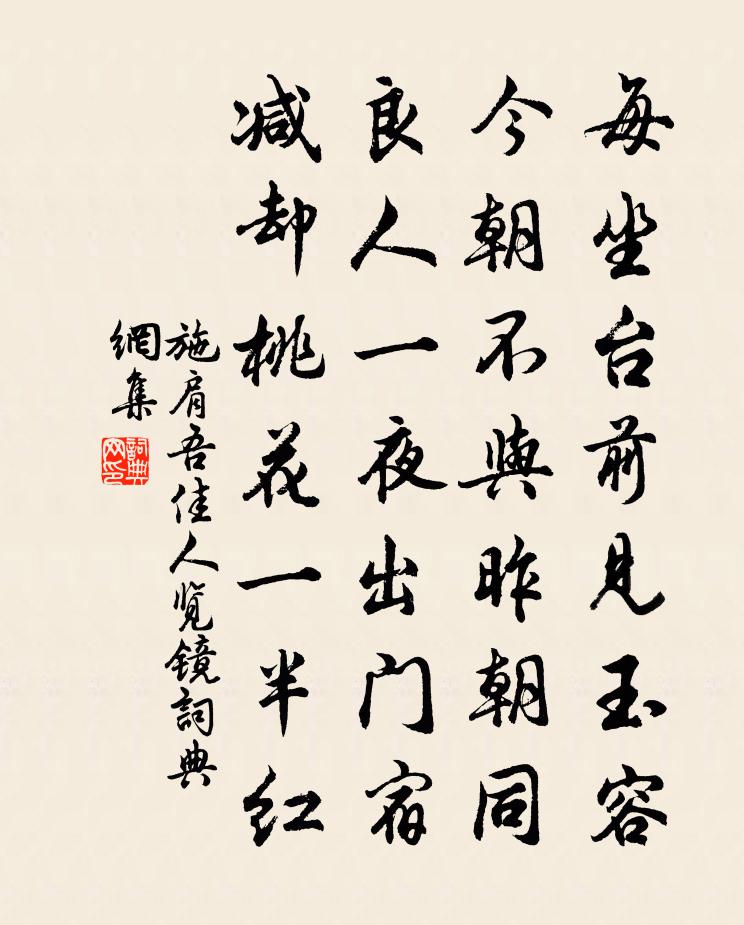 每坐台前见玉容
今朝不與昨朝同
良人一夜出门宿
减却桃花一半红
施肩吾佳人览镜詞典
網集
詞典
网印